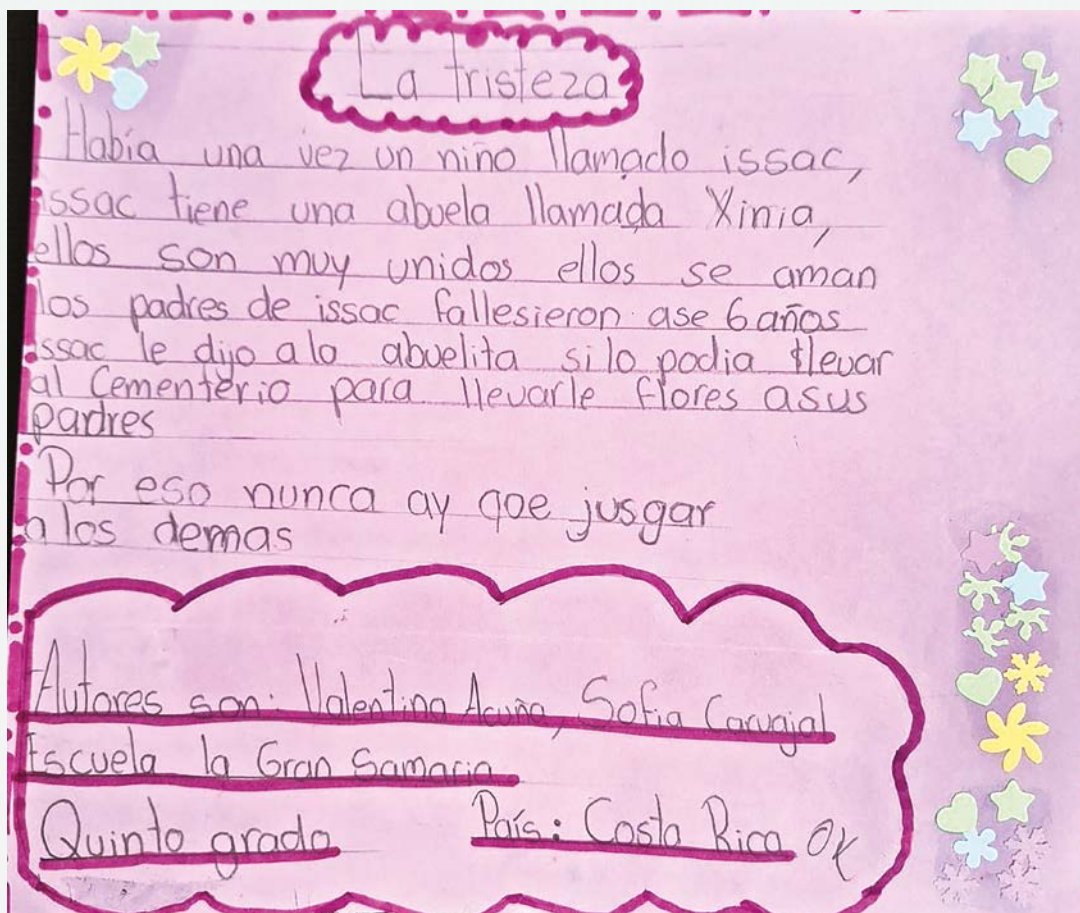 La tristeza
Había una vez un niño llamado issac,
issac tiene una abuela llamada Xinia,
ellos son muy unidos ellos se aman
los padres de issac fallesieron ase 6 años
issac le dijo a la abuelita si lo podia llevar
al Cementerio para llevarle flores asus
padres
Por eso nunca ay que jusgar
a los demas
Autores son: Valentina Acuña, Sofia Carvajal
Escuela la Gran Samaria
Quinto grado País: Costa Rica OK